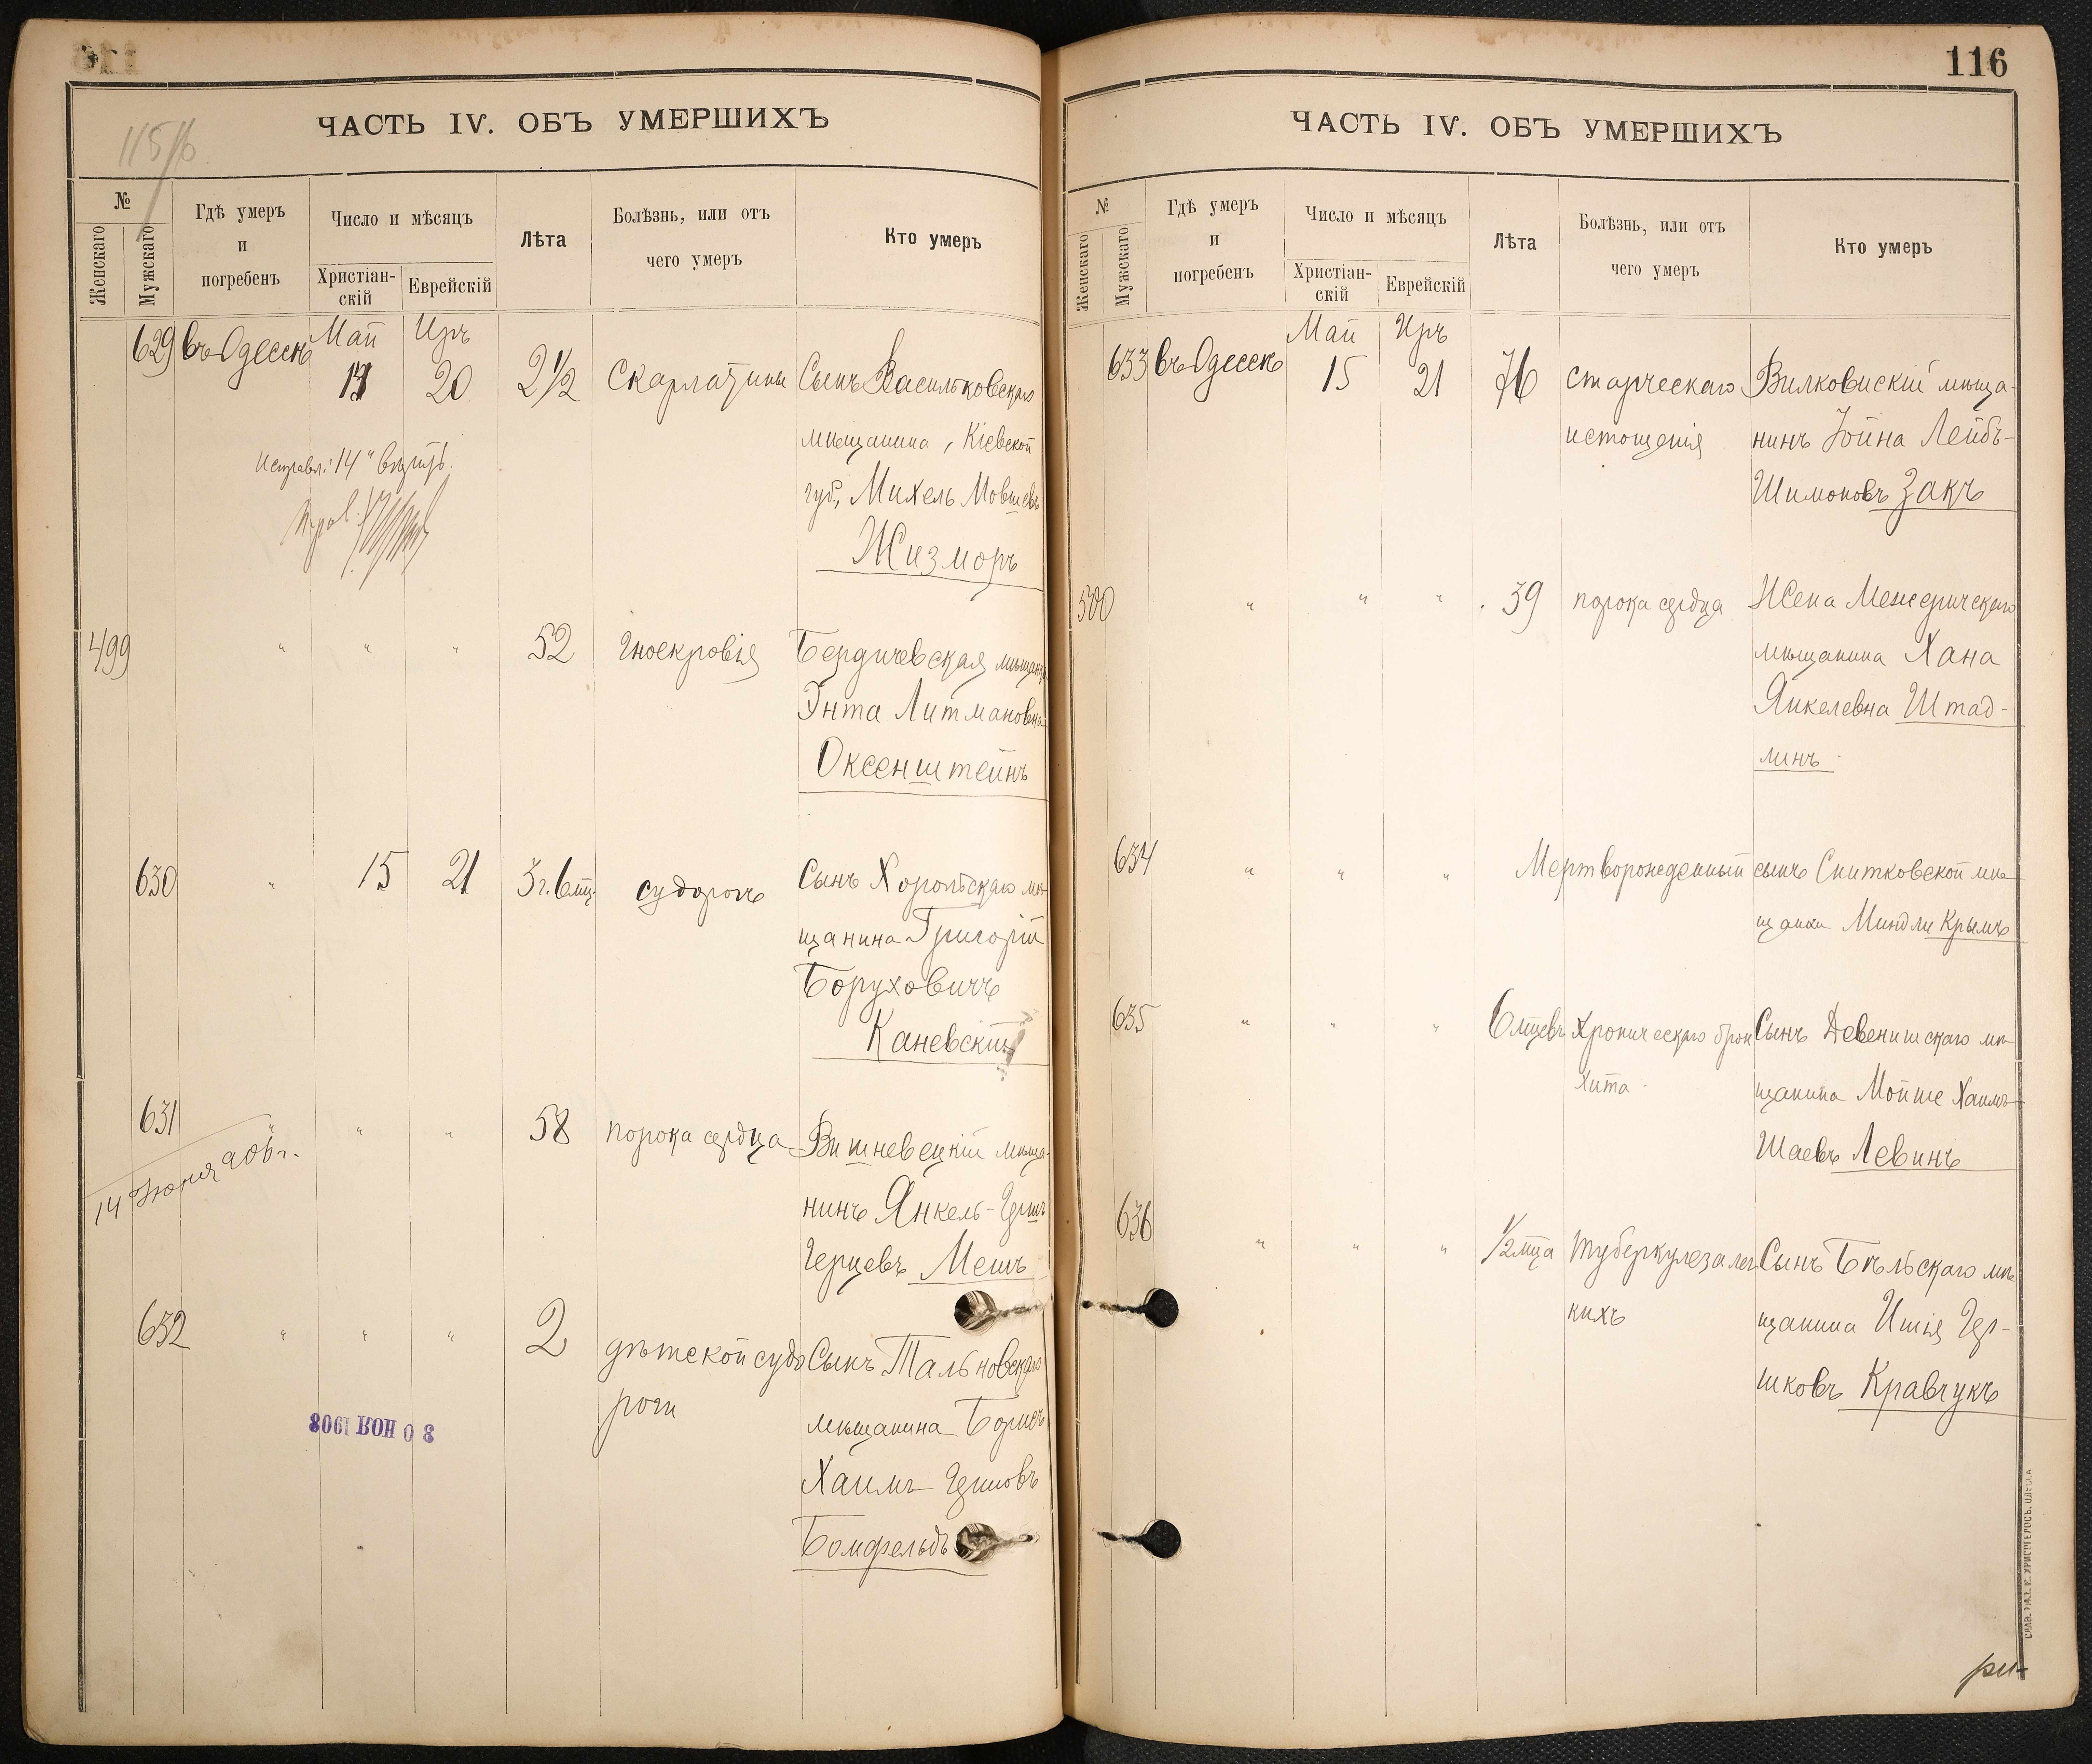 115/б
ЧАСТЬ IV. ОБЪ УМЕРШИХЪ
№
Женскаго
Мужскаго
Гдѣ умеръ
и
погребенъ
Число и мѣсяцъ
Христіан-
скій
Еврейскій
Лѣта
Болѣзнь, или отъ
чего умеръ
Кто умеръ
629 въ Одессѣ Май Иръ
20 2 1/2 Скарлатины Сынъ Васильковскаго
мѣщанина, Кіевской
губ., Михель Мовшевъ
Жизморъ
Исправл: 14
499 " " " 52 Гноекровія Бердичевская мѣщанка
Энта Литмановна
Оксенштейнъ
630 " 15 21 3 г. 6 мц. судорогъ Сынъ Хорольскаго мѣ-
щанина Григорій
Боруховичъ
Каневскій
631 " " " 58 порока сердца Вишневецкій мѣща-
нинъ Янкель-Гершъ
Герцевъ Мешъ
14 Іюня 906 г.
632 " " " 2 дѣтской судо Сынъ Тальновскаго
роги
мѣщанина Борисъ
Хаимъ Гершовъ
Бомфельдъ
30 НОЯ 1908
116
ЧАСТЬ IV. ОБЪ УМЕРШИХЪ
№
Женскаго
Мужскаго
Гдѣ умеръ
и
погребенъ
Число и мѣсяцъ
Христіан-
скій
Еврейскій
Лѣта
Болѣзнь, или отъ
чего умеръ
Кто умеръ
633 въ Одессѣ Май Иръ
15 21 76 старческаго Вилковискій мѣща-
истощенія нинъ Іойна Лейбъ-
Шимоновъ Закъ
500 " " " 39 порока сердца Жена Межеричскаго
мѣщанина Хана
Янкелевна Штад-
линъ
634 " " " Мертворожденный сынъ Снитковской мѣ-
щанки Миндли Крымъ
635 " " " 6 мцевъ Хроническаго брон Сынъ Девенишскаго мѣ-
хита щанина Мойше Хаимъ
Шаевъ Левинъ
636 " " " 1/2 мца туберкулеза лег Сынъ Бѣльскаго мѣ-
кихъ щанина Ишія Гер-
шковъ Кравчукъ
ри-